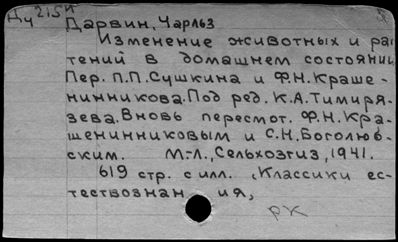 Дч 215и
Дарвин, Чарльз
Изменение животных и рас
тений в домашнем состоянии.
Пер. П.П.Сушкина и Ф.Н.Краше-
нинникова. Под ред. К.А.Тимиря-
зева. Вновь пересмот. Ф.Н.Кра-
шенинниковым и С.Н.Боголюб-
ским. М.-Л., Сельхозгиз, 1941.
619 стр. с илл. (Классики ес-
тествознан ия,
РК